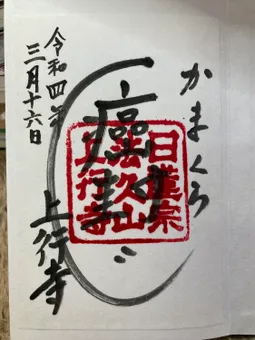 かまくら
癌封じ
日蓮宗
法久山
上行寺
上行寺
令和四年
三月十六日